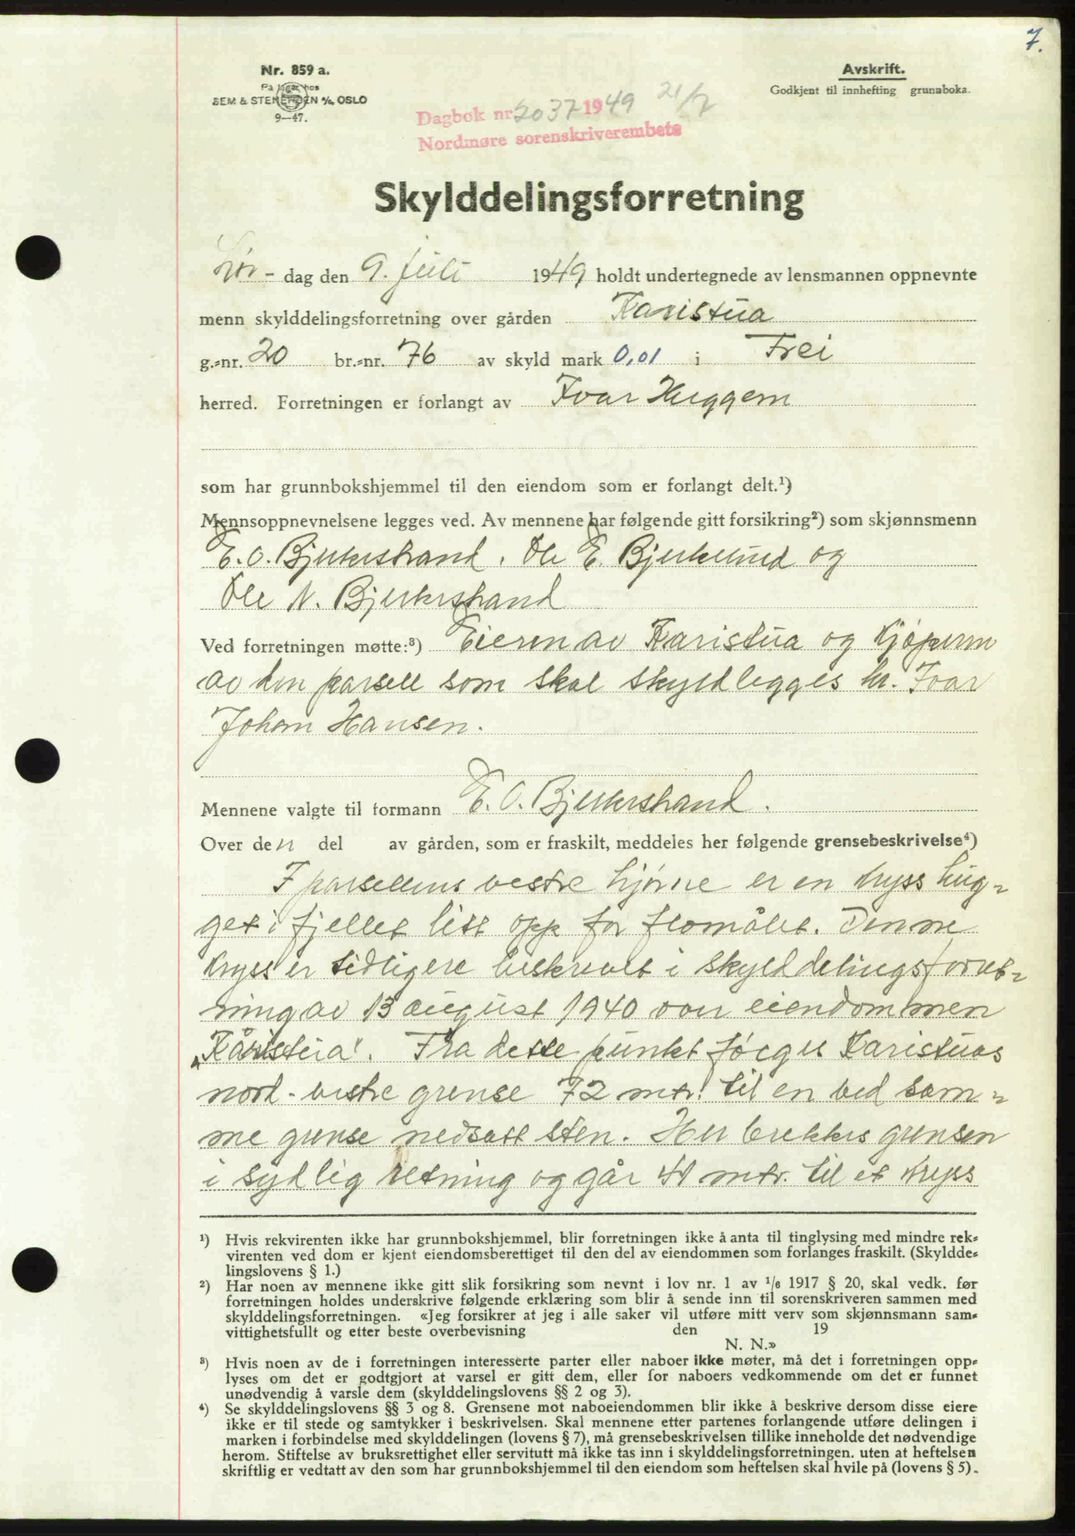 7.
Nr. 859 a.
På lager hos
SEM & STENERSEN A/S, OSLO
9—47.
Avskrift.
Godkjent til innhefting grunnboka.
Dagbok nr. 2037 1949 21/7
Nordmøre sorenskriverembete
Skylddelingsforretning
Lør- dag den 9. juli 1949 holdt undertegnede av lensmannen oppnevnte
menn skylddelingsforretning over gården Karistua
g.-nr. 20 br.-nr. 76 av skyld mark 0,01 i Frei
herred. Forretningen er forlangt av Ivar Huggem
som har grunnbokshjemmel til den eiendom som er forlangt delt.¹)
Mennsoppnevnelsene legges ved. Av mennene har følgende gitt forsikring²) som skjønnsmenn
E. O. Bjerkestrand. Ole E. Bjerkelund og
Ole N. Bjerkestrand
Ved forretningen møtte:³) Eieren av Karistua og kjøperen
av den parsell som skal skyldlegges hr. Ivar
Johan Hansen.
Mennene valgte til formann E. O. Bjerkestrand.
Over den del av gården, som er fraskilt, meddeles her følgende grensebeskrivelse⁴)
I parsellens vestre hjørne er en kryss hug-
get i fjellet litt opp for flomålet. Denne
kryss er tidligere beskrevet i skylddelingsforret-
ning av 13 august 1940 over eiendommen
„Karistua". Fra dette punkt følger Karistuas
nord-vestre grense 72 mtr. til en ved sam-
me grense nedsatt sten. Her brekkes grensen
i sydlig retning og går 41 mtr. til et kryss
¹) Hvis rekvirenten ikke har grunnbokshjemmel, blir forretningen ikke å anta til tinglysing med mindre rek-
virenten ved dom er kjent eiendomsberettiget til den del av eiendommen som forlanges fraskilt. (Skyldde-
lingslovens § 1.)
²) Har noen av mennene ikke gitt slik forsikring som nevnt i lov nr. 1 av ¹/₆ 1917 § 20, skal vedk. før
forretningen holdes underskrive følgende erklæring som blir å sende inn til sorenskriveren sammen med
skylddelingsforretningen. «Jeg forsikrer at jeg i alle saker vil utføre mitt verv som skjønnsmann sam-
vittighetsfullt og etter beste overbevisning den 19
N. N.»
³) Hvis noen av de i forretningen interesserte parter eller naboer ikke møter, må det i forretningen opp-
lyses om det er godtgjort at varsel er gitt dem, eller for naboers vedkommende om det er funnet
unødvendig å varsle dem (skylddelingslovens §§ 2 og 3).
⁴) Se skylddelingslovens §§ 3 og 8. Grensene mot naboeiendommen blir ikke å beskrive dersom disse eiere
ikke er til stede og samtykker i beskrivelsen. Skal mennene etter partenes forlangende utføre delingen i
marken i forbindelse med skylddelingen (lovens § 7), må grensebeskrivelsen tillike inneholde det nødvendige
herom. Stiftelse av bruksrettighet eller servitutt må ikke tas inn i skylddelingsforretningen. uten at heftelsen
skriftlig er vedtatt av den som har grunnbokshjemmel til den eiendom som heftelsen skal hvile på (lovens § 5).